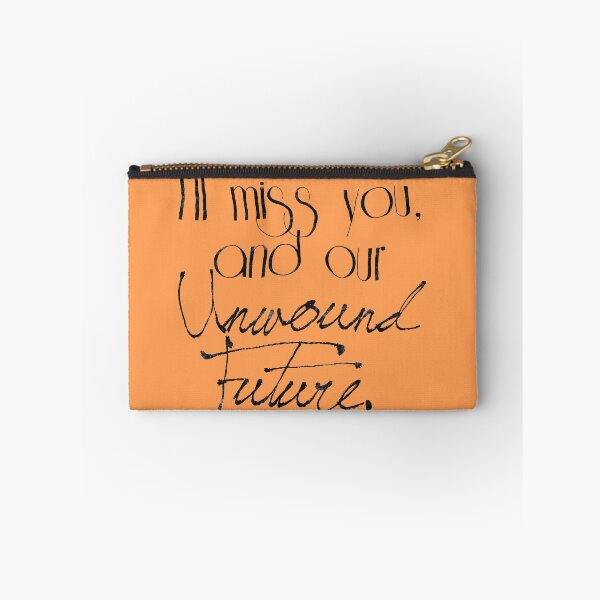 I'll miss you,
and our
Unwound
Future.